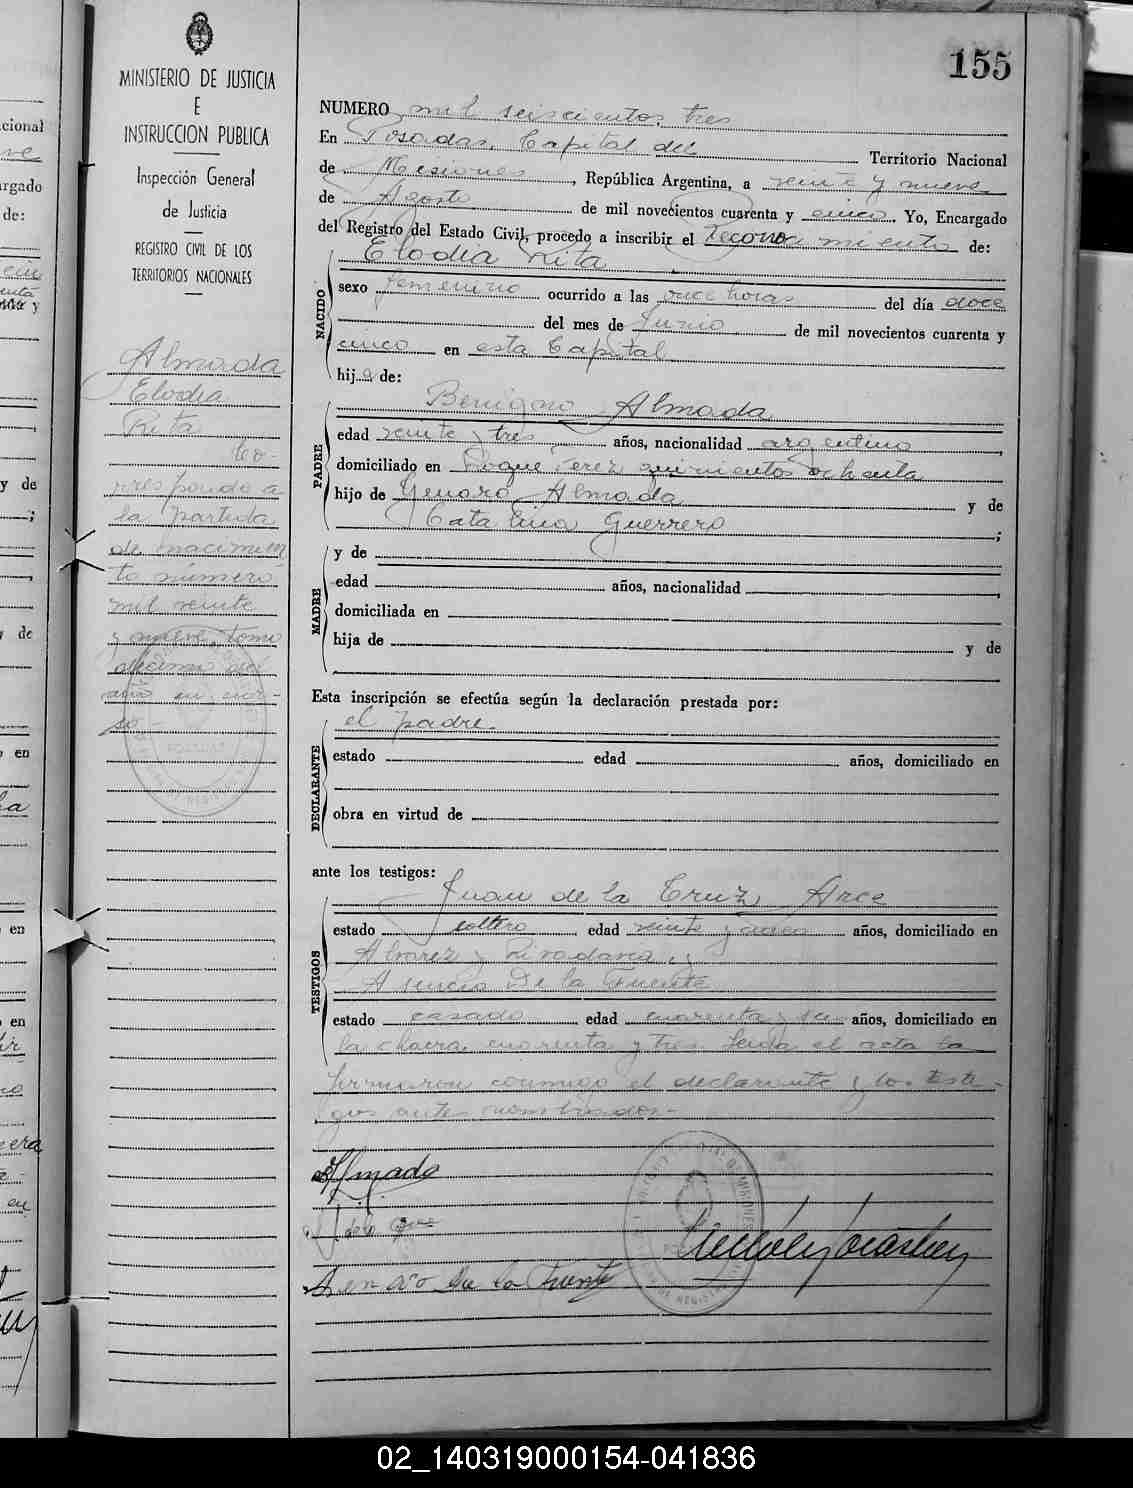 155
MINISTERIO DE JUSTICIA
E
INSTRUCCION PUBLICA
Inspección General
de Justicia
REGISTRO CIVIL DE LOS
TERRITORIOS NACIONALES
Almada
Elodia
Rita
Co-
rresponde a
la partida
de nacimien
to número
mil veinte
y nueve, tomo
décimo del
año en cur-
so.-
NUMERO mil seiscientos tres
En Posadas, Capital del Territorio Nacional
de Misiones, República Argentina, a veinte y nueve
de Agosto de mil novecientos cuarenta y cinco. Yo, Encargado
del Registro del Estado Civil, procedo a inscribir el reconocimiento de:
Elodia Rita
NACIDO
sexo femenino ocurrido a las once horas del día doce
del mes de Junio de mil novecientos cuarenta y
cinco en esta Capital
hija de:
PADRE
Benigno Almada
edad veinte y tres años, nacionalidad argentino,
domiciliado en Roque Perez quinientos ochenta
hijo de Genaro Almada y de
Catalina Guerrero;
MADRE
y de
edad años, nacionalidad,
domiciliada en
hija de y de
Esta inscripción se efectúa según la declaración prestada por:
el padre.
DECLARANTE
estado edad años, domiciliado en
obra en virtud de
ante los testigos:
TESTIGOS
Juan de la Cruz Arce
estado soltero edad veinte y años, domiciliado en
Alvarez y Rivadavia, y
Asencio De la Fuente
estado casado edad cuarenta y seis años, domiciliado en
la chacra cuarenta y tres. Leída el acta la
firmaron conmigo el declarante y los testi-
gos antes nombrados.-
Almada
De la Fuente
02_140319000154-041836